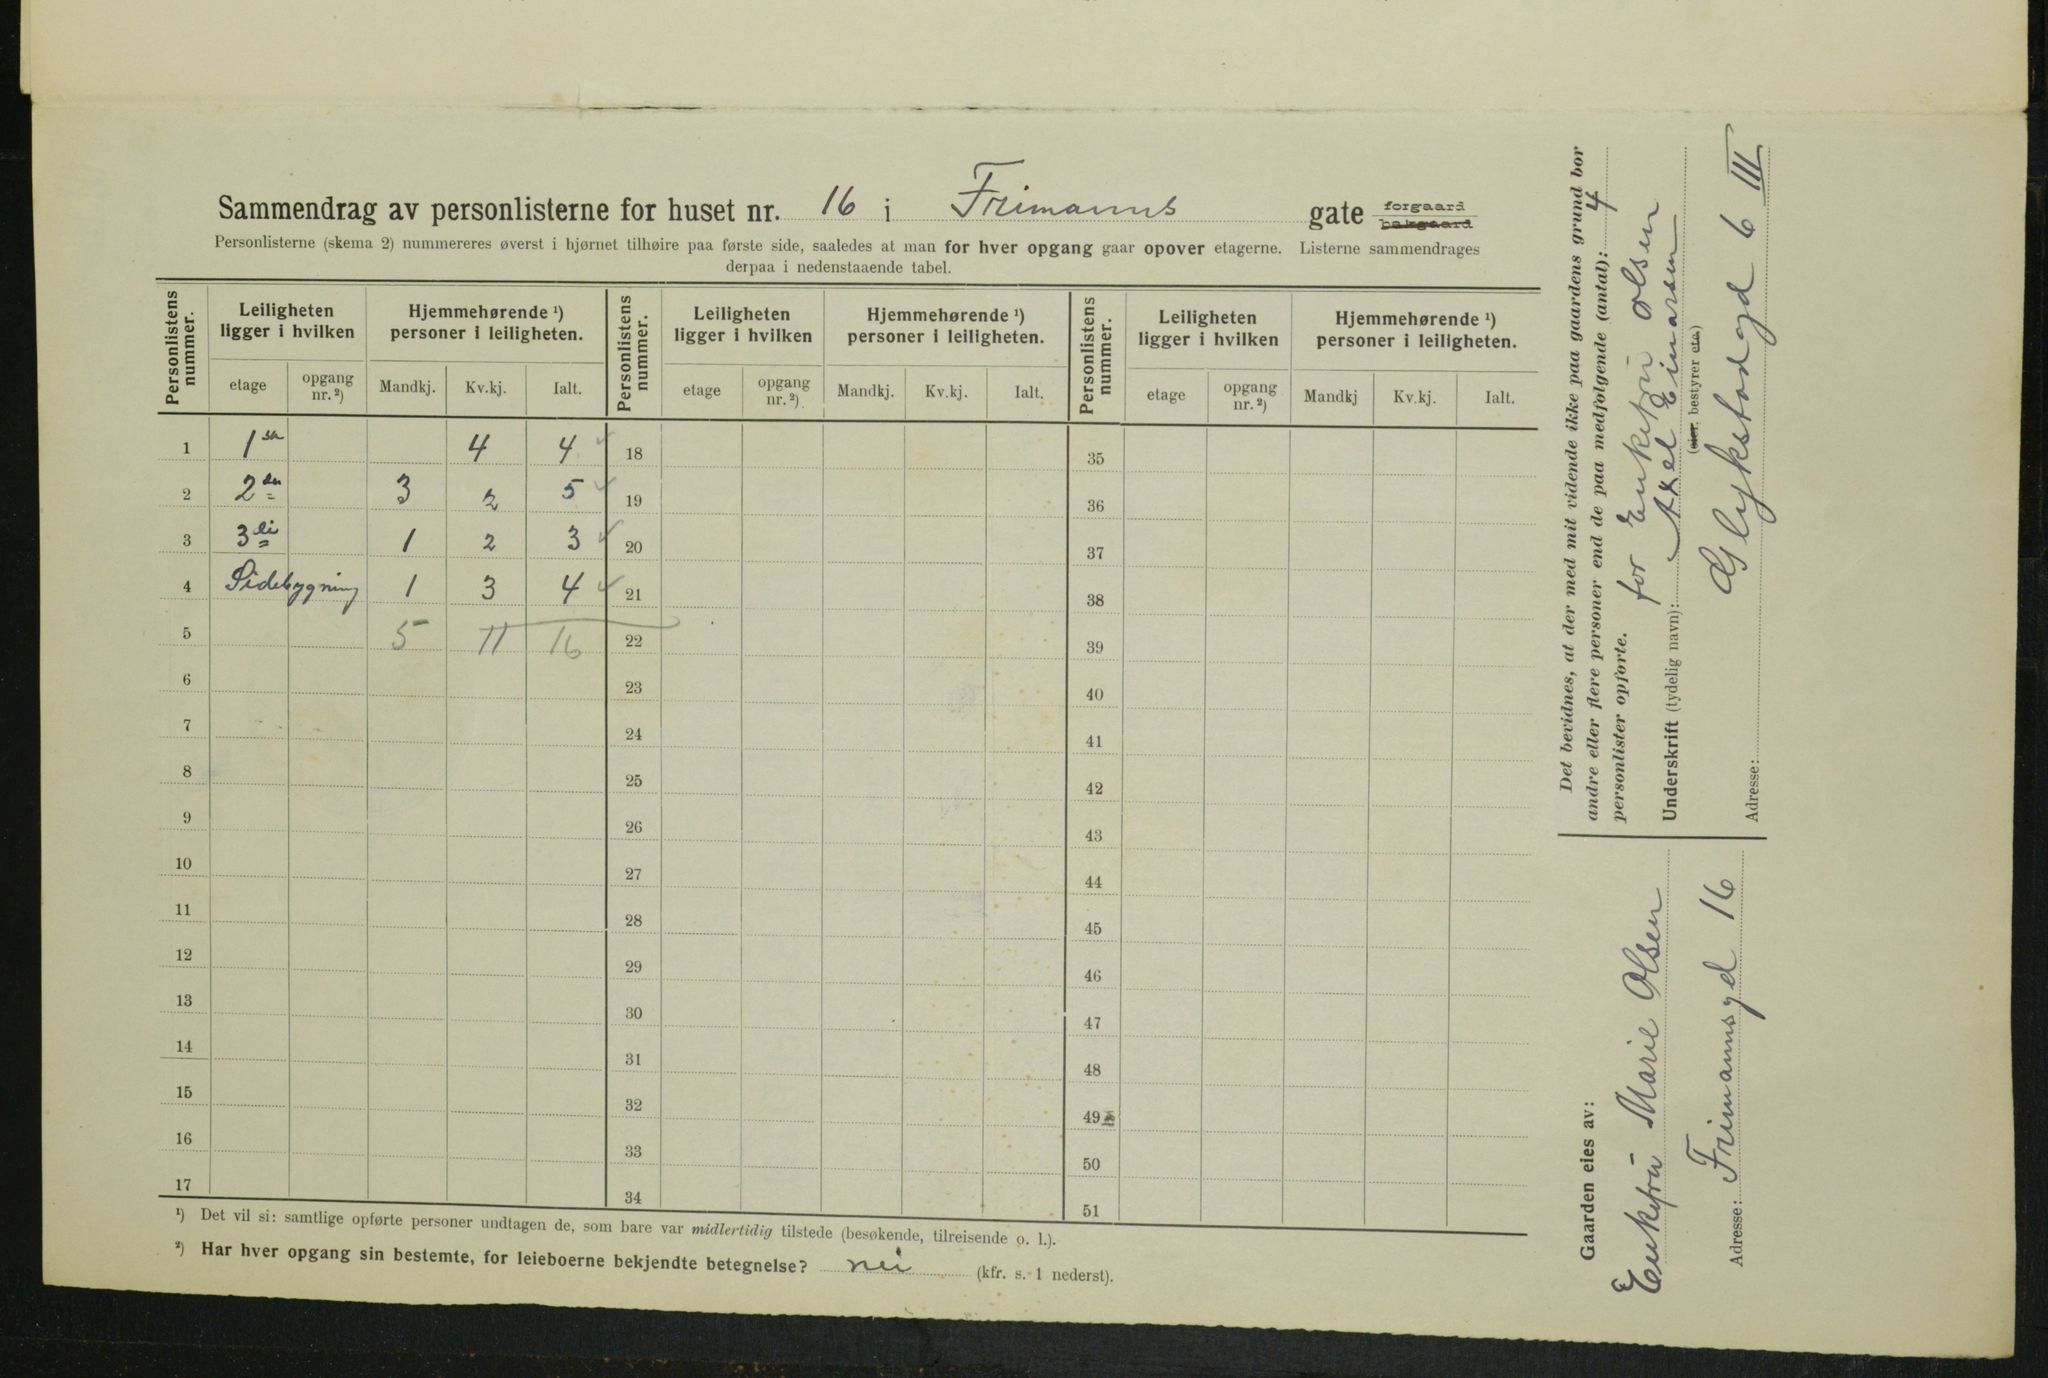 Sammendrag av personlisterne for huset nr. 16 i Frimanns gate forgaard bakgaard
Personlisterne (skema 2) nummereres øverst i hjørnet tilhøire paa første side, saaledes at man for hver opgang gaar opover etagerne. Listerne sammendrages
derpaa i nedenstaaende tabel.
Personlistens nummer. Leiligheten ligger i hvilken Hjemmehørende ¹) personer i leiligheten. Personlistens nummer. Leiligheten ligger i hvilken Hjemmehørende ¹) personer i leiligheten. Personlistens nummer. Leiligheten ligger i hvilken Hjemmehørende ¹) personer i leiligheten.
etage opgang nr. ²) Mandkj. Kv.kj. Ialt. etage opgang nr. ²) Mandkj. Kv.kj. Ialt. etage opgang nr. ²) Mandkj Kv.kj. Ialt.
1 1ste 4 4 18 35
2 2den 3 2 5 19 36
3 3die 1 2 3 20 37
4 Sidebygning 1 3 4 21 38
5 5 11 16 22 39
6 23 40
7 24 41
8 25 42
9 26 43
10 27 44
11 28 45
12 29 46
13 30 47
14 31 48
15 32 49
16 33 50
17 34 51
¹) Det vil si: samtlige opførte personer undtagen de, som bare var midlertidig tilstede (besøkende, tilreisende o. l.).
²) Har hver opgang sin bestemte, for leieboerne bekjendte betegnelse? nei (kfr. s. 1 nederst).
Det bevidnes, at der med mit vidende ikke paa gaardens grund bor
andre eller flere personer end de paa medfølgende (antal): 4
personlister opførte.
for Enkefru Olsen
Underskrift (tydelig navn): Axel Einarsen
(eier, bestyrer etc.)
Adresse: Glykstadgd 6 III
Gaarden eies av:
Enkefru Marie Olsen
Adresse: Frimannsgd 16